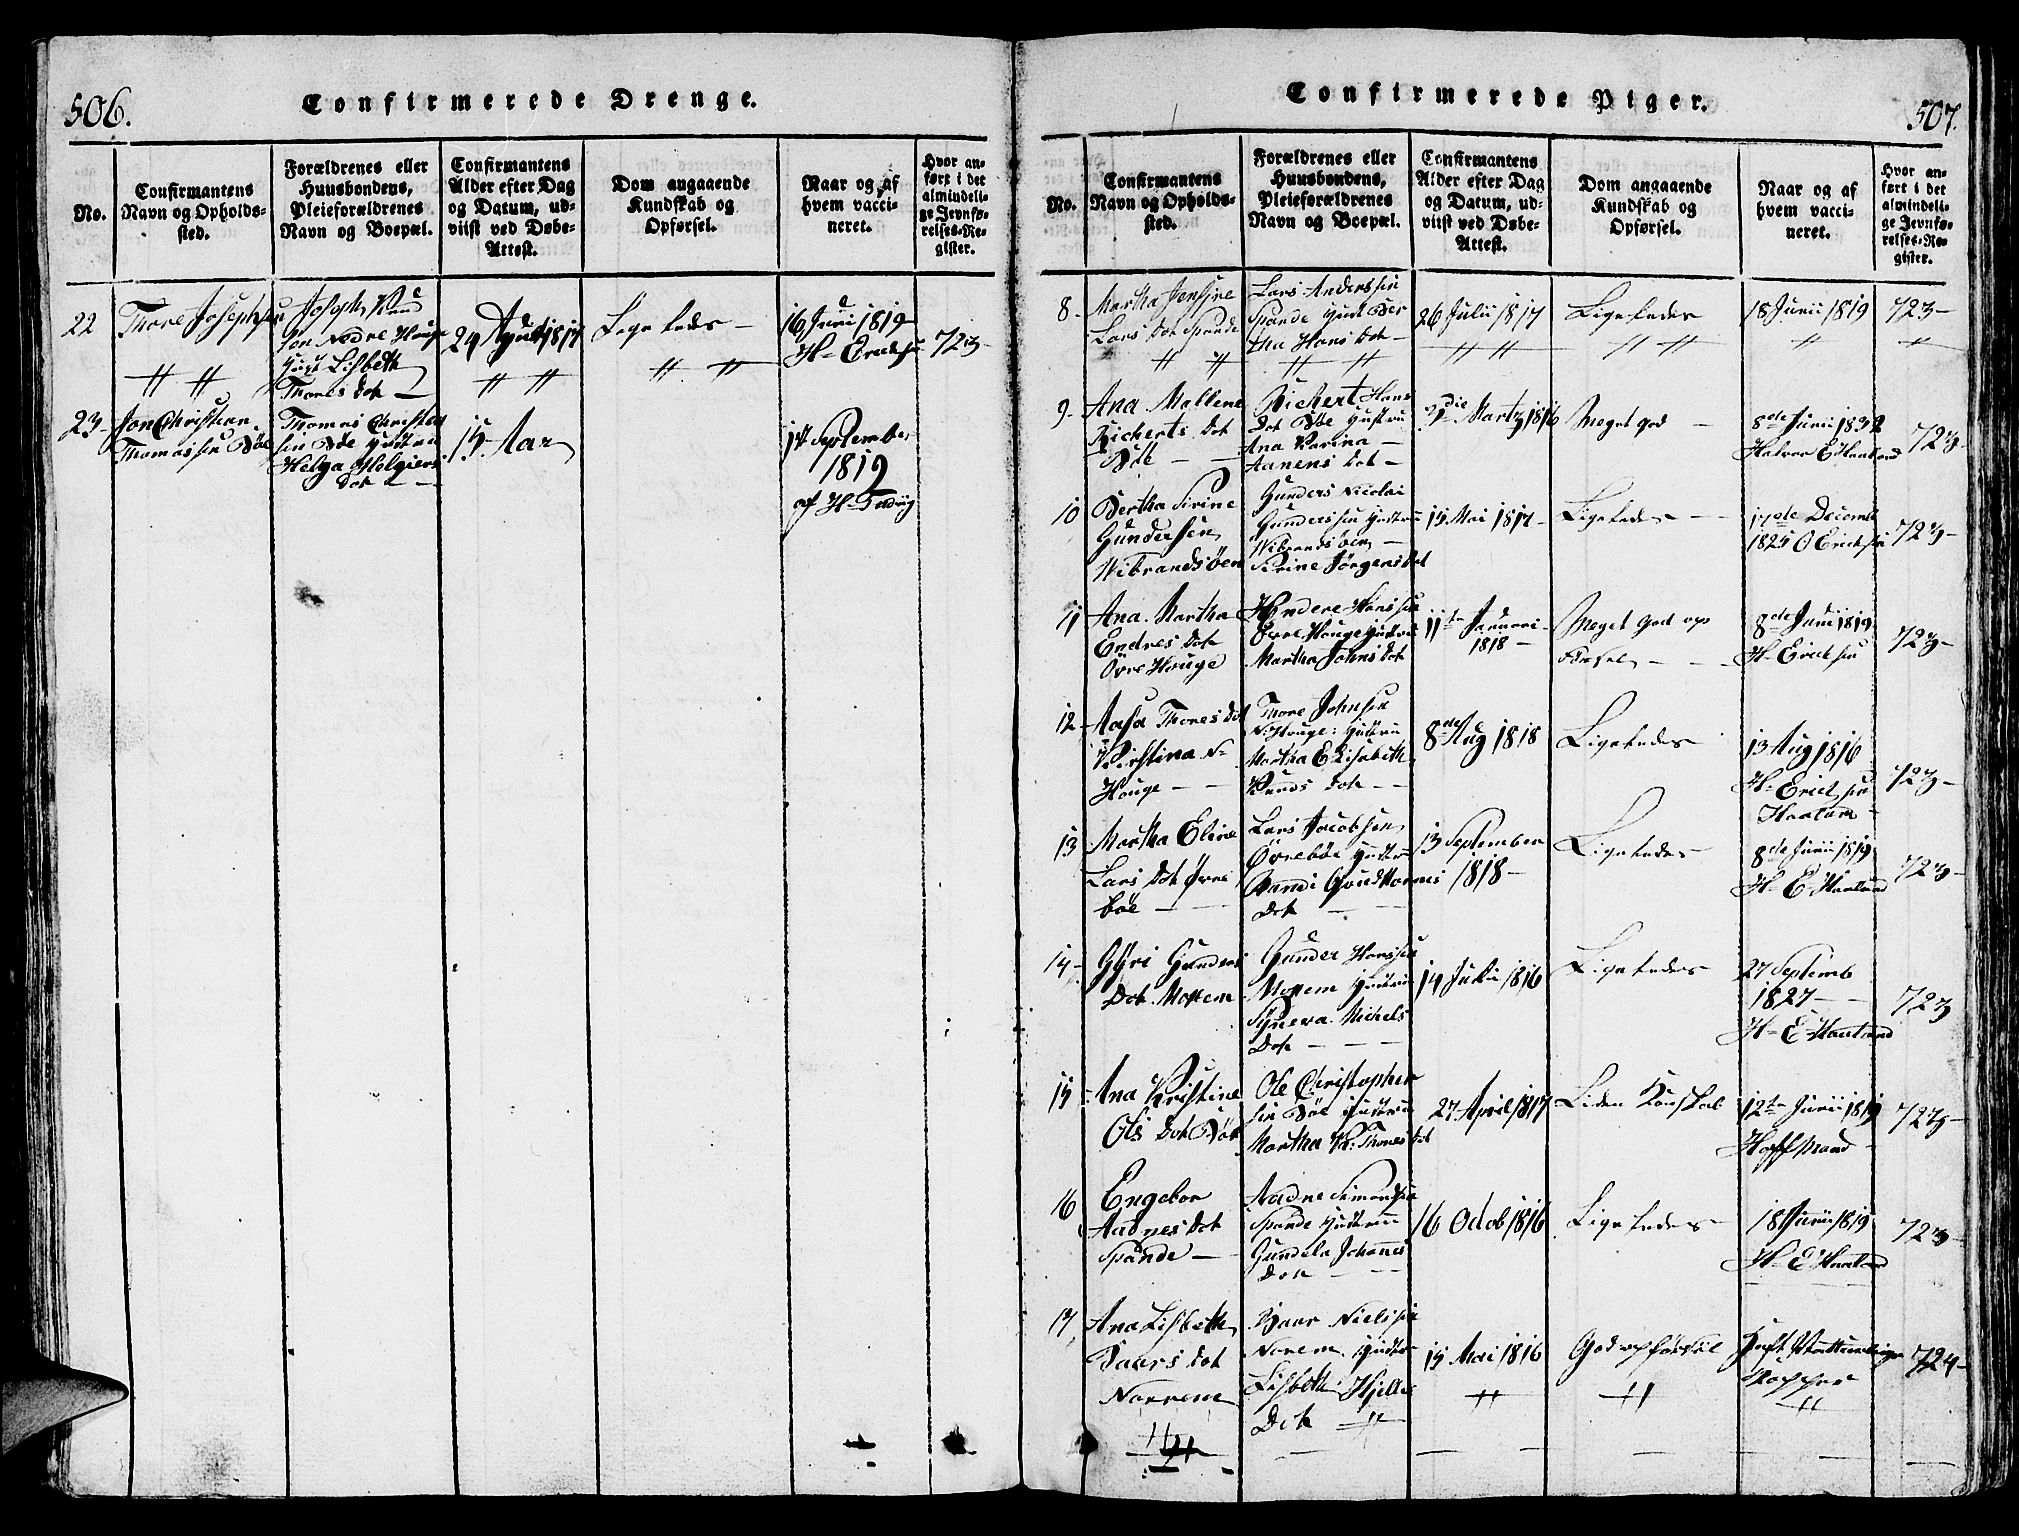 506.
Confirmerede Drenge.
No.
Confirmantens
Navn og Opholds-
sted.
Forældrenes eller
Huusbondens,
Pleieforældrenes
Navn og Boepæl.
Confirmantens
Alder efter Dag
og Datum, ud-
viist ved Døbe-
Attest.
Dom angaaende
Kundskab og
Opførsel.
Naar og af
hvem vacci-
neret.
Hvor an-
ført i det
almindeli-
ge Jevnfø-
relses-Re-
gister.
22
Thore Josephsen
Joseph Knud
sen Nedre Houge
Lisbeth
Thores Dot
24 1817
Ligeledes
16 Juni 1819
H Ericksen
723
23
Jon Christian
Thomassen Bøe
Thomas Christen
sen Bøe
Helga Holgiers
Dot
15 Aar
14 September
1819
af H
Confirmerede Piger.
507.
No.
Confirmantens
Navn og Opholds-
sted.
Forældrenes eller
Huusbondens,
Pleieforældrenes
Navn og Boepæl.
Confirmantens
Alder efter Dag
og Datum, ud-
viist ved Døbe-
Attest.
Dom angaaende
Kundskab og
Opførsel.
Naar og af
hvem vacci-
neret.
Hvor an-
ført i det
almindeli-
ge Jevnfø-
relses-Re-
gister.
8
Martha
Lars Dot Spande
Lars Anderssen
Spande Hust Ber
tha Hans Dot
26 Julii 1817
Ligeledes
18 Junii 1819
723
9
Ana Mallene
Richerts Dot
Bøe
Richert Hans
Bøe Hustru
Ana Karina
Aanens Dot
Martz 1816
Meget god
8de Junii 1832
Halvor E Haaland
723
10
Bertha Sirine
Gundersen
Wibrandsøen
Gunders Nicolai
Gunderssen Hustru
Wibrandsøen
Sirine Jørgensdot
15 Mai 1817
Ligeledes
17de Decemb
1825 O Ericksen
723
11
Ana Martha
Endres Dot
Øvre Houge
Endre Hanssen
Øvre Houge Hustru
Martha Johns Dot
11te Januari
1818
Meget God op
førsel
8de Junii 1819
H Ericksen
723
12
Aasa Thores Dot
Kirstina N
Houge
Thore Johnsen
N Houge Hustru
Martha Elisabeth
Knuds Dot
8de Aug 1818
Ligeledes
13 Aug 1816
H Ericksen
Haaland
723
13
Martha Eline
Lars Dot Øvre
bøe
Lars Jacobsen
Øvrebøe Hustru
Randi
Dot
13 September
1818
Ligeledes
8de Junii 1819
H E Haaland
723
14
Gyri Gunders
Dot
Gunder Hanssen
Hustru
Synneva Michels
Dot
14 Julii 1816
Ligeledes
27 Septemb
1827
H E Haaland
723
15
Ana Kristine
Ols Dot Bøe
Ole Christopher
sen Bøe Hustru
Martha K. Thores Dot
27 April 1817
Liden Kunskab
12te Junii 1819
723
16
Engebor
Aadnes Dot
Spande
Aadne Simonssen
Spande Hustru
Gundela Johannes
Dot
16 Octob 1816
Ligeledes
18 Junii 1819
H E Haaland
723
17
Ana Lisbeth
Baars Dot
Norrem
Baar Nielssen
Norem Hustr
Lisbeth
Dot
15 Mai 1816
God opførsel
Haft Naturlige
Kopper
724